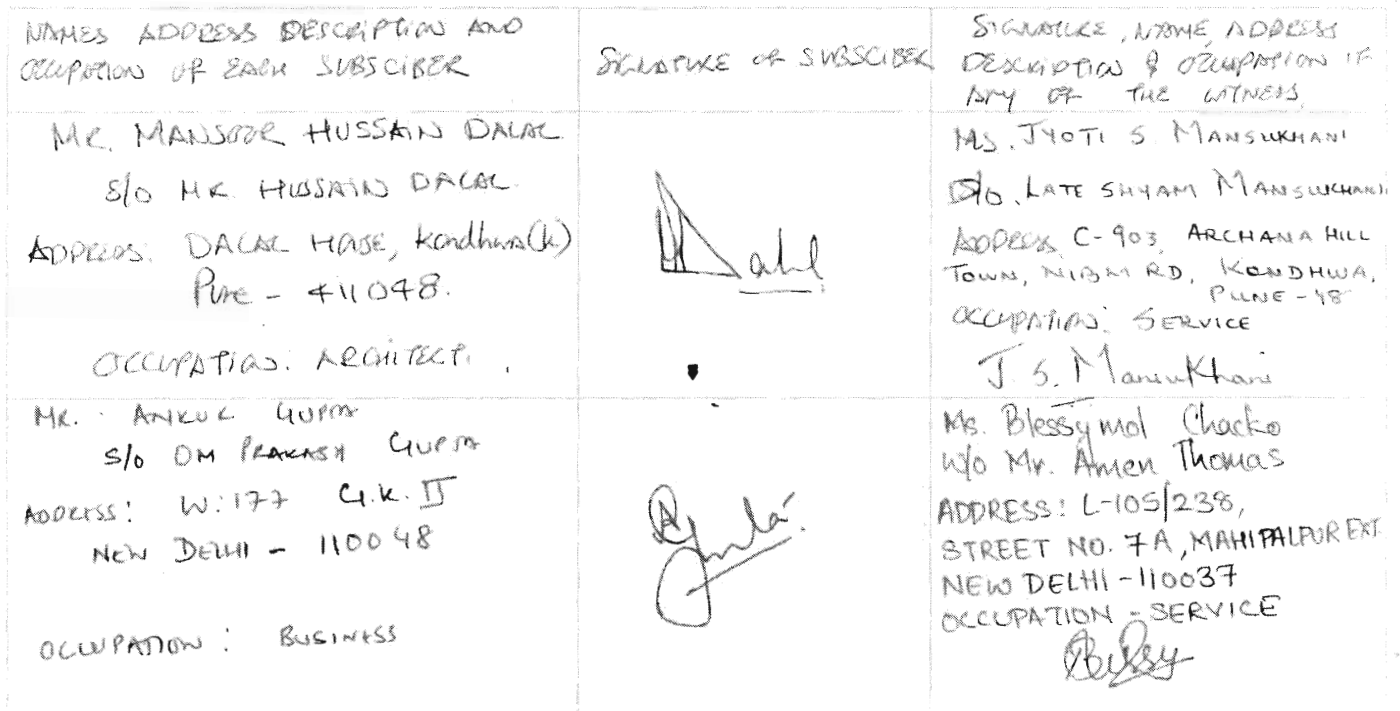 NAMES ADDRESS DESCRIPTION AND
OCCUPATION OF EACH SUBSCIBER
SIGNATURE OF SUBSCIBER
SIGNATURE, NAME, ADDRESS
DESCRIPTION & OCCUPATION IF
ANY OF THE WITNESS
MR. MANSOOR HUSSAIN DALAL
S/O MR. HUSSAIN DALAL
ADDRESS: DALAL HOUSE, Kondhwa(k)
PUNE - 411048.
OCCUPATION: ARCHITECT.
Dalal
MS. JYOTI S. MANSUKHANI
D/O. LATE SHYAM MANSUKHANI
ADDRESS C-903, ARCHANA HILL
TOWN, NIBM RD, KONDHWA,
PUNE-48
OCCUPATION: SERVICE
J. S. Mansukhani
MR. ANKUR GUPTA
S/O OM PRAKASH GUPTA
ADDRESS: W:177 G.K. II
NEW DELHI - 110048
OCCUPATION: BUSINESS
Ms. Blessymol Chacko
W/o Mr. Amen Thomas
ADDRESS: L-105/238,
STREET NO. 7A, MAHIPALPUR EXT.
NEW DELHI - 110037
OCCUPATION - SERVICE
Blessy